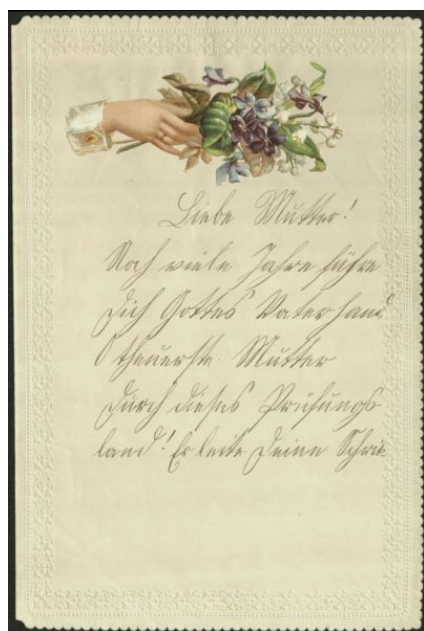 Liebe Mutter!
Noch viele Jahre führe
Dich Gottes Vaterhand
O theuerste Mutter
Durch dieses Prüfungs
land! Er leite Deine Schrit=